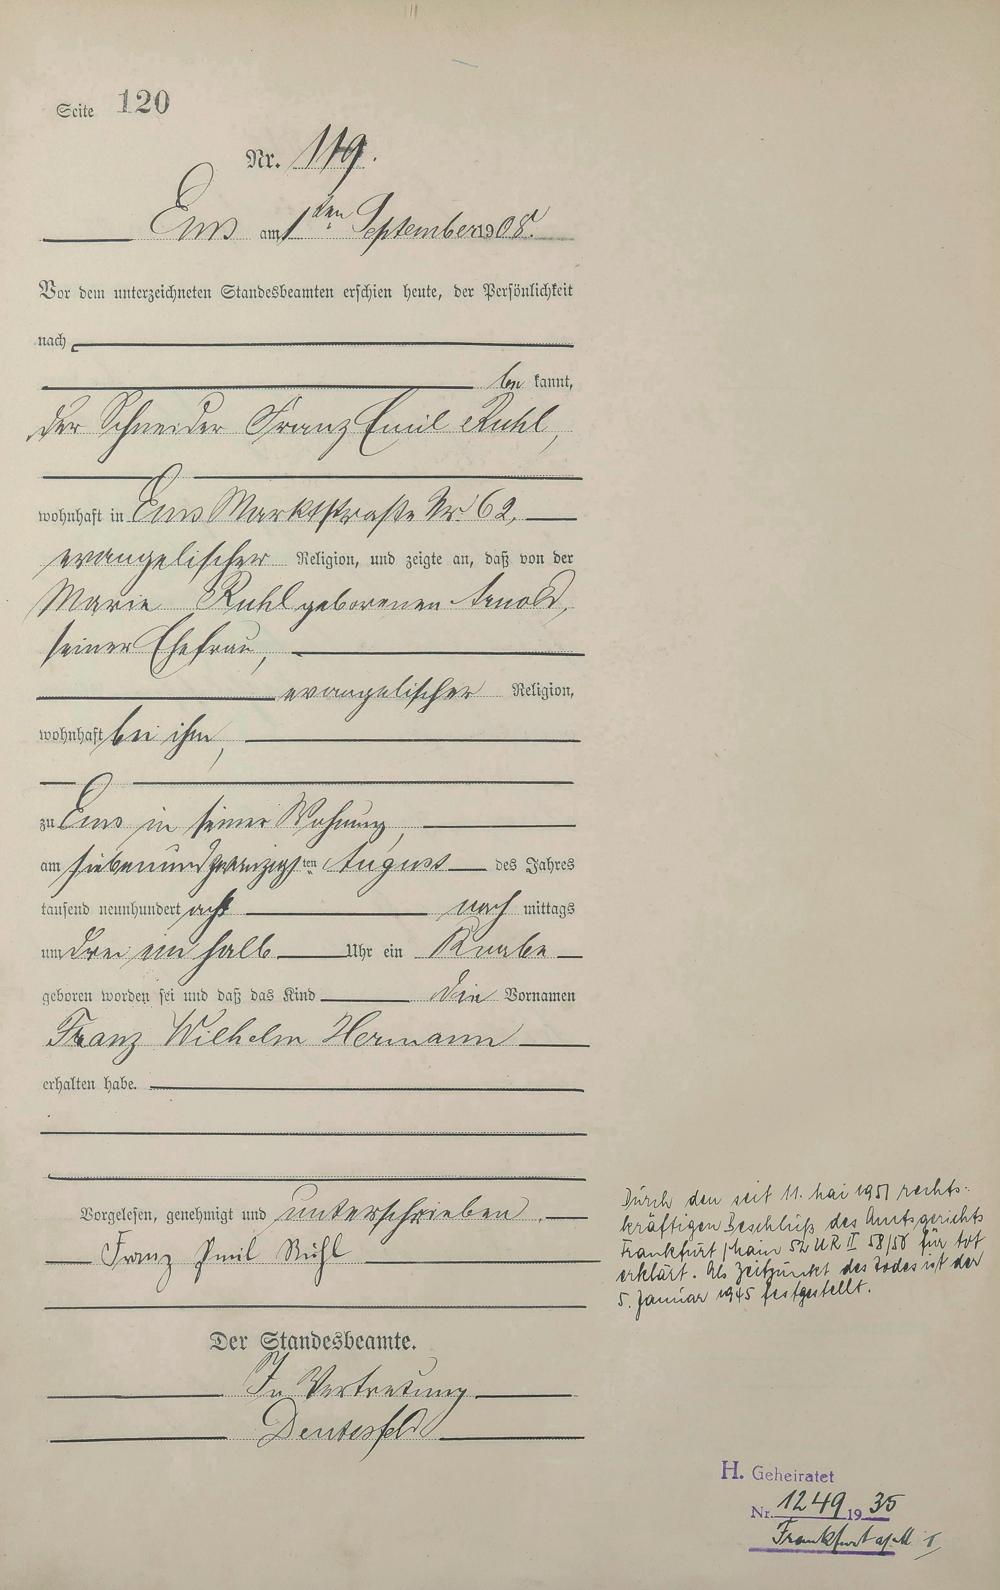 Seite 120
Nr. 119.
Ems am 1ten September 1908.
Vor dem unterzeichneten Standesbeamten erschien heute, der Persönlichkeit
nach
be kannt,
der Schneider Franz Emil Ruhl,
wohnhaft in Ems Marktstraße Nr. 62,
evangelischer Religion, und zeigte an, daß von der
Marie Ruhl geborenen Arnold,
seiner Ehefrau,
evangelischer Religion,
wohnhaft bei ihm,
zu Ems in seiner Wohnung,
am siebenundzwanzigsten August des Jahres
tausend neunhundert acht nach mittags
um drei ein halb Uhr ein Knabe
geboren worden sei und daß das Kind die Vornamen
Franz Wilhelm Hermann
erhalten habe.
Vorgelesen, genehmigt und unterschrieben.
Franz Emil Ruhl
Der Standesbeamte.
In Vertretung
Durch den seit 11. Mai 1951 rechts-
kräftigen Beschluß des Amtsgerichts
Frankfurt/Main 52 UR II 58/50 für tot
erklärt. Als Zeitpunkt des Todes ist der
5. Januar 1945 festgestellt.
H. Geheiratet
Nr. 1249 1935
Frankfurt a/M I